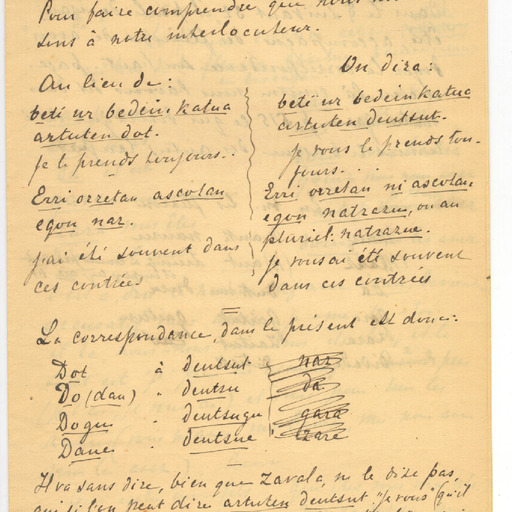 Pour faire comprendre que nous
sons à notre interlocuteur.
Au lieu de:
beti ur bedeinkatua
artuten dot.
je le prends toujours.
Erri orretan ascotan
egon nar.
j'ai été souvent dans
ces contrées
On dira:
beti ur bedeinkatua
artuten deutsut.
je vous le prends tou-
jours.
Erri orretan ni ascotan
egon natrazu, ou au
pluriel: natrazue.
je vous ai été souvent
dans ces contrées
La correspondance, dans le présent est donc:
Dot à deutsut nar
Do (dau) " deutsu da
Dogu " deutsugu gara
Daue " deutsue zare
Il va sans dire, bien que Zavala, ne le dise pas,
qui si l'on peut dire artuten deutsut "je vous" (qu'il